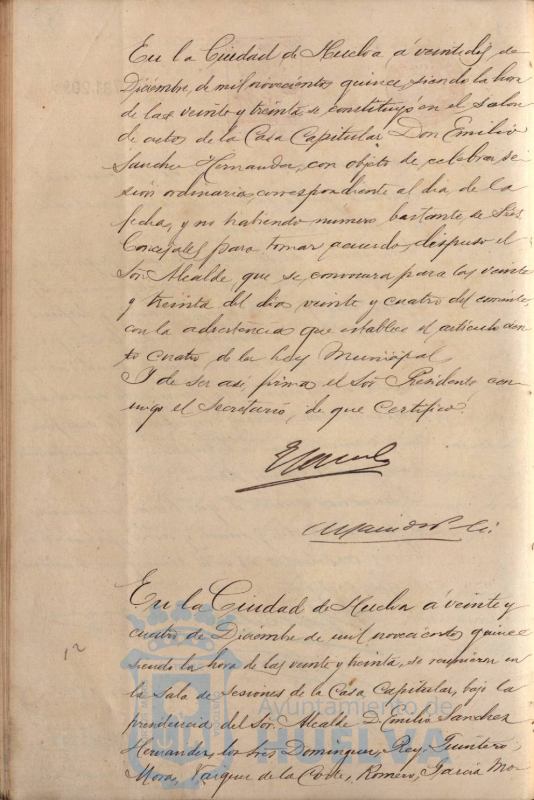 En la Ciudad de Huelva á veintidos de
Diciembre, de mil novecientos quince, siendo la hora
de las veinte y treinta, se constituyó en el salon
de actos de la Casa Capitular Don Emilio
Sanchez Hernandez, con objeto de celebrar se
sion ordinaria, correspondiente al dia de la
fecha, y no habiendo numero bastante de Sres
Concejales para tomar acuerdo, dispuso el
Sor. Alcalde, que se convocara para las veinte
y treinta del dia veinte y cuatro del corriente,
con la advertencia que establece el articulo cien
to cuatro de la Ley Municipal.
Y de ser asi, firma el Sor Presidente, con
migo el Secretario, de que certifico.
En la Ciudad de Huelva á veinte y
cuatro de Diciembre de mil novecientos quince
siendo la hora de las veinte y treinta, se reunieron en
la Sala de Sesiones de la Casa Capitular, bajo la
presidencia del Sor. Alcalde D. Emilio Sanchez
Hernandez, los Sres Dominguez, Rey, Quintero,
Mora, Vazquez de la Corte, Romero, Garcia Mo-
Ayuntamiento de
HUELVA